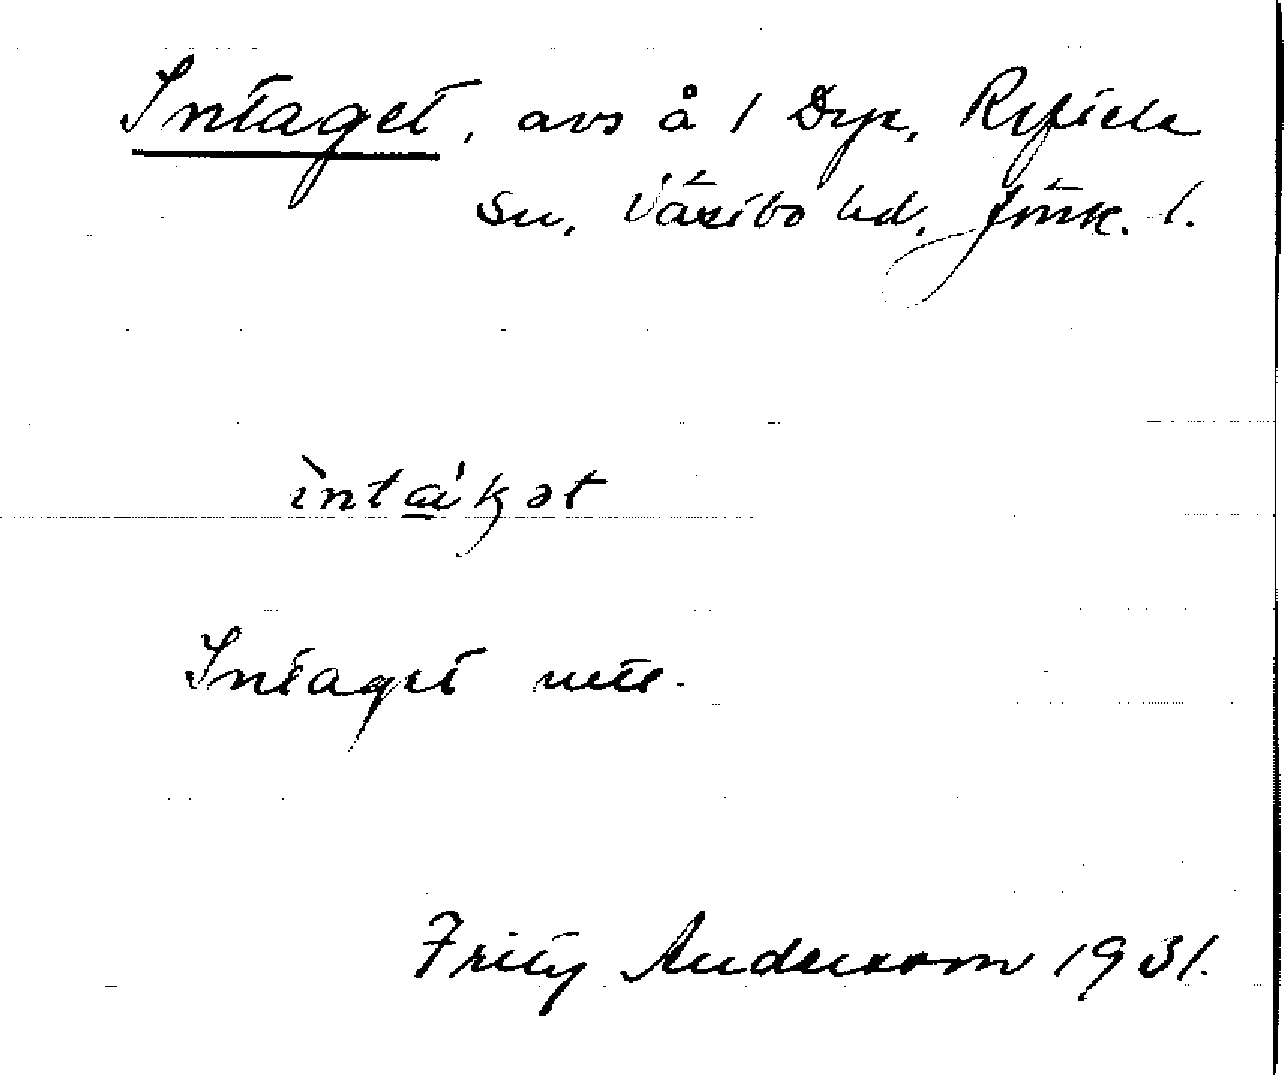 Intaget, avs å 1 Dyn, Reftele
sn, Västbo hd, Jönk. l.
ìntáket
Intaget utt.
Fritz Andersson 1931.